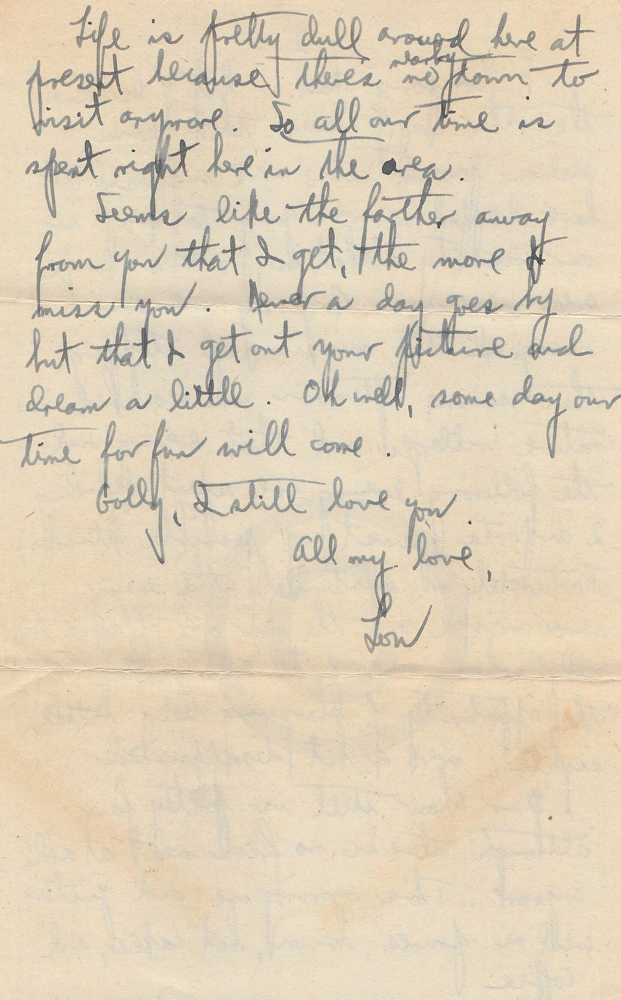 Life is pretty dull around here at
present because there's no nearby town to
visit anymore. So all our time is
spent right here in the area.
Seems like the farther away
from you that I get, the more I
miss you. Never a day goes by
but that I get out your picture and
dream a little. Oh well, some day our
time for fun will come.
Golly, I still love you.
All my love,
Lou